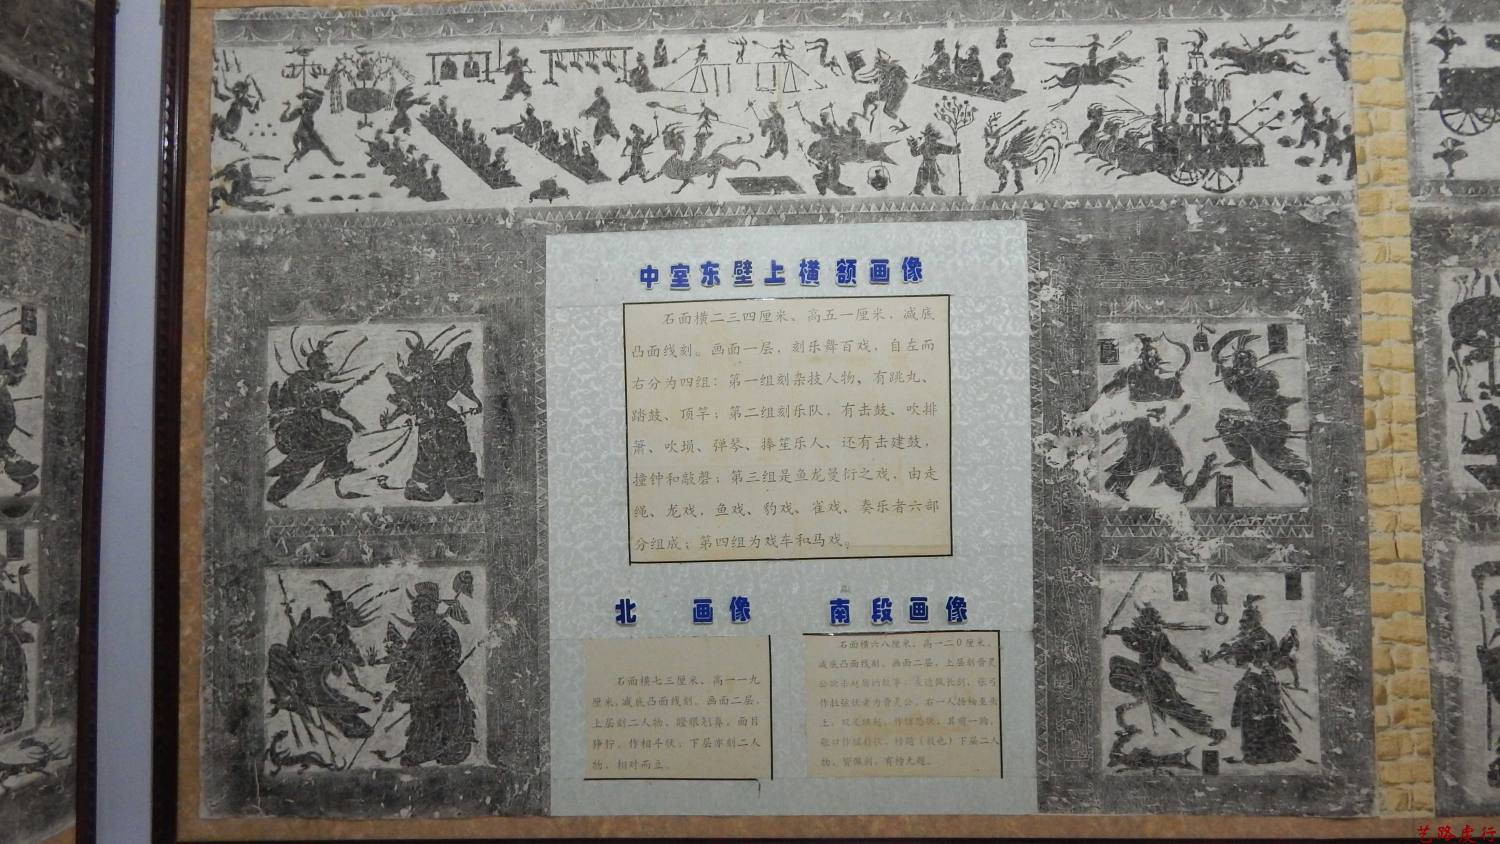 中室东壁上横额画像
石面横二三四厘米、高五一厘米，减底
凸面线刻。画面一层，刻乐舞百戏，自左而
右分为四组：第一组刻杂技人物、有跳丸、
踏鼓、顶竿；第二组刻乐队，有击鼓、吹排
箫、吹埙、弹琴、捧笙乐人、还有击建鼓，
撞钟和敲磬；第三组是鱼龙曼衍之戏，由走
绳、龙戏，鱼戏、豹戏、雀戏、奏乐者六部
分组成；第四组为戏车和马戏。
北 画像
石面横七三厘米、高一一九
厘米，减底凸面线刻。画面二层，
上层刻二人物，瞪眼翘鼻，面目
狰狞，作相斗状；下层亦刻二人
物，相对而立。
南段画像
石面横六八厘米，高一二0厘米，
减底凸面线刻。画面二层，上层刻晋灵
公欲杀赵盾的故事：左边佩长剑，张弓
作拉弦状者为晋灵公，右一人
其前一狗，
下层二人
物，皆佩剑，有榜无题。
艺路虔行